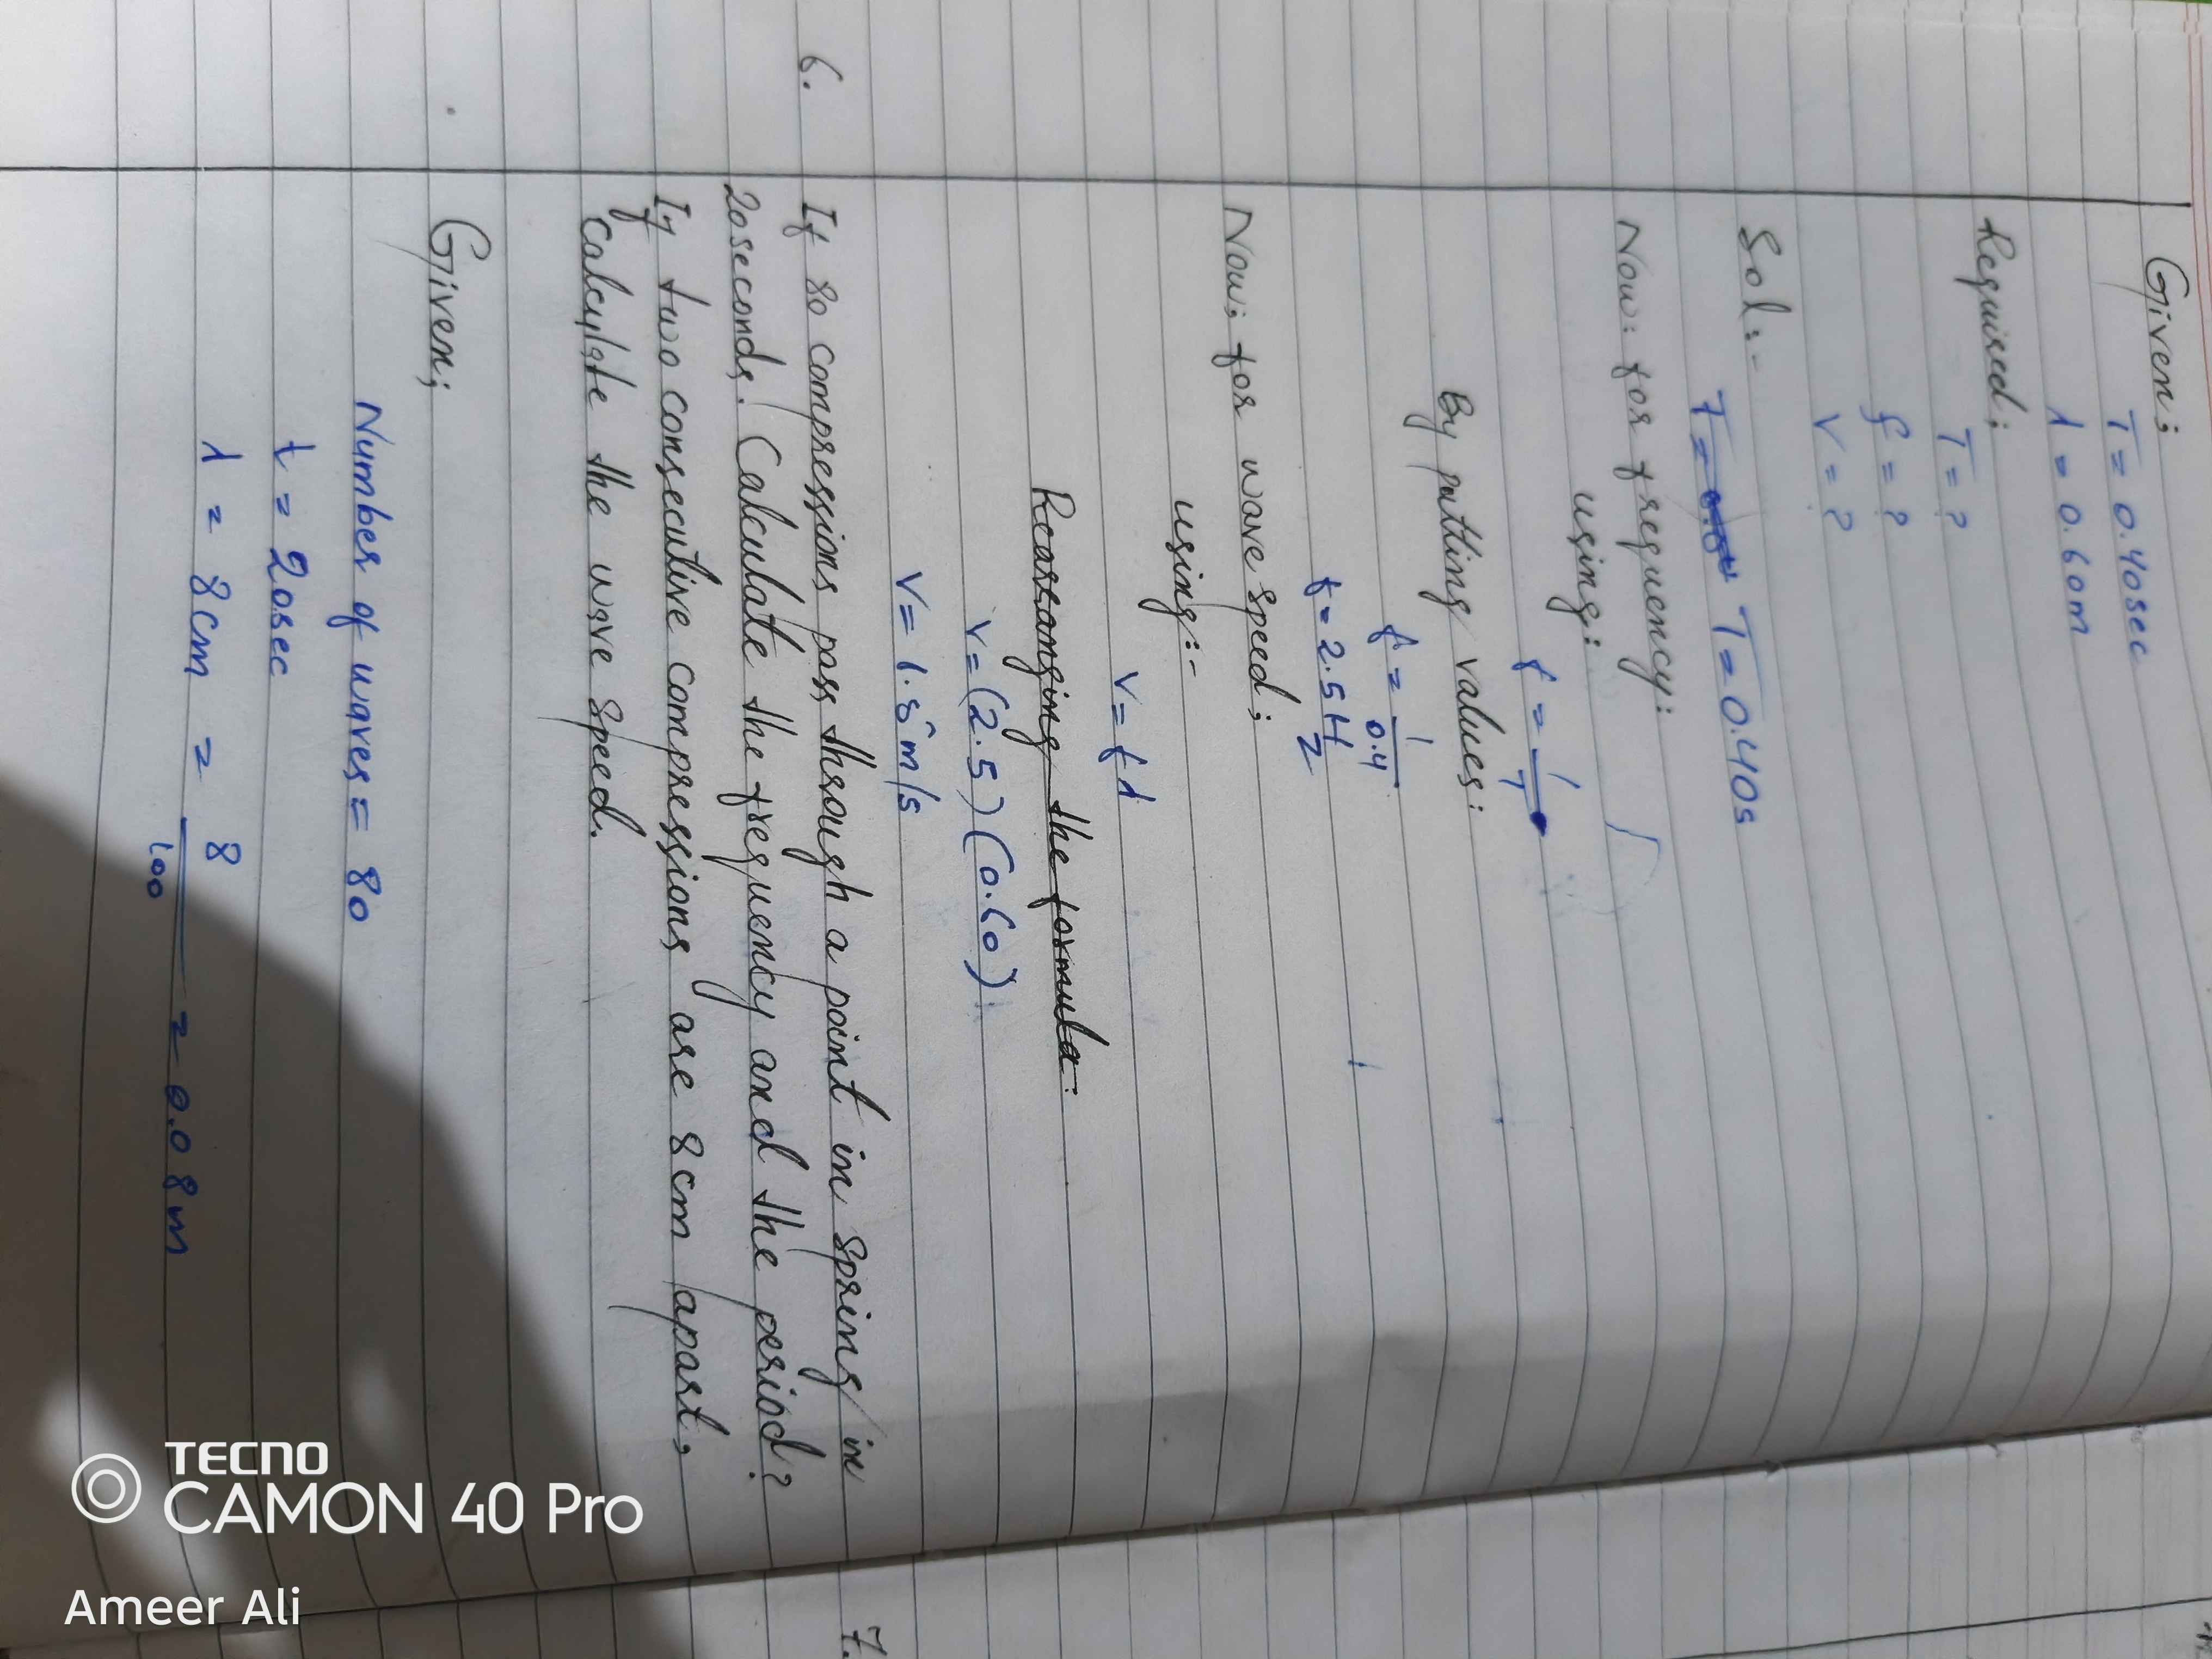 Given;
T = 0.40sec
λ = 0.60m
Required;
T = ?
f = ?
v = ?
Sol:-
T = 0.40s
Now: for frequency:
using:
f = 1/T
By putting values:
f = 1/0.4
f = 2.5 Hz
Now; for wave speed;
using:-
v = fλ
Rearranging the formula:
v = (2.5) (0.60)
v = 1.5 m/s
6. If 80 compressions pass through a point in spring in
20seconds. Calculate the frequency and the period?
If two consecutive compressions are 8cm apart,
calculate the wave speed.
7.
Given;
Number of waves = 80
t = 20sec
λ = 8cm = 8/100 = 0.08m
TECNO
CAMON 40 Pro
Ameer Ali